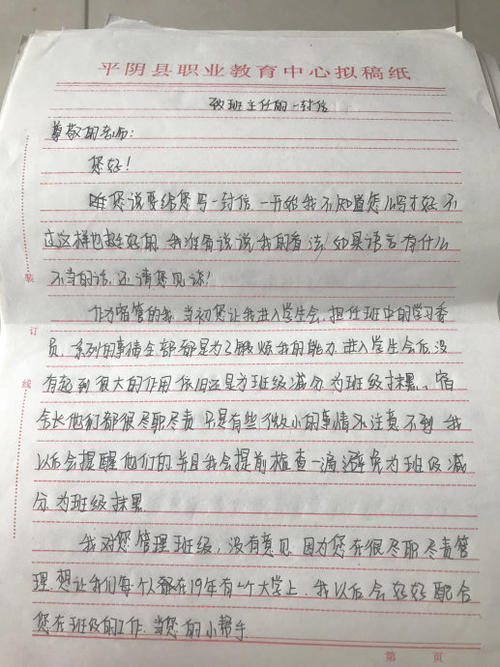 平阴县职业教育中心拟稿纸
致班主任的一封信
尊敬的老师:
您好!
听您说要给您写一封信,一开始我不知道怎么写才好,不
过这样也挺好的,我准备说说我的看法!如果语言有什么
不当的话,还请您见谅!
作为宿管的我,当初您让我进入学生会,担任班中的学习委
员,系列的事情全部都是为了锻炼我的能力,进入学生会后,没
有起到很大的作用依旧还是为班级减分,为班级抹黑。宿
舍长他们都很尽职尽责,只是有些微小的事情还注意不到,我
以后会提醒他们的并且我会提前检查一遍避免为班级减
分,为班级抹黑
我对您管理班级,没有意见,因为您在很尽职尽责管
理,想让我们每个人都在19年有个大学上,我以后会好好配合
您在班级的工作,当您的小帮手
装
订
线
第 页